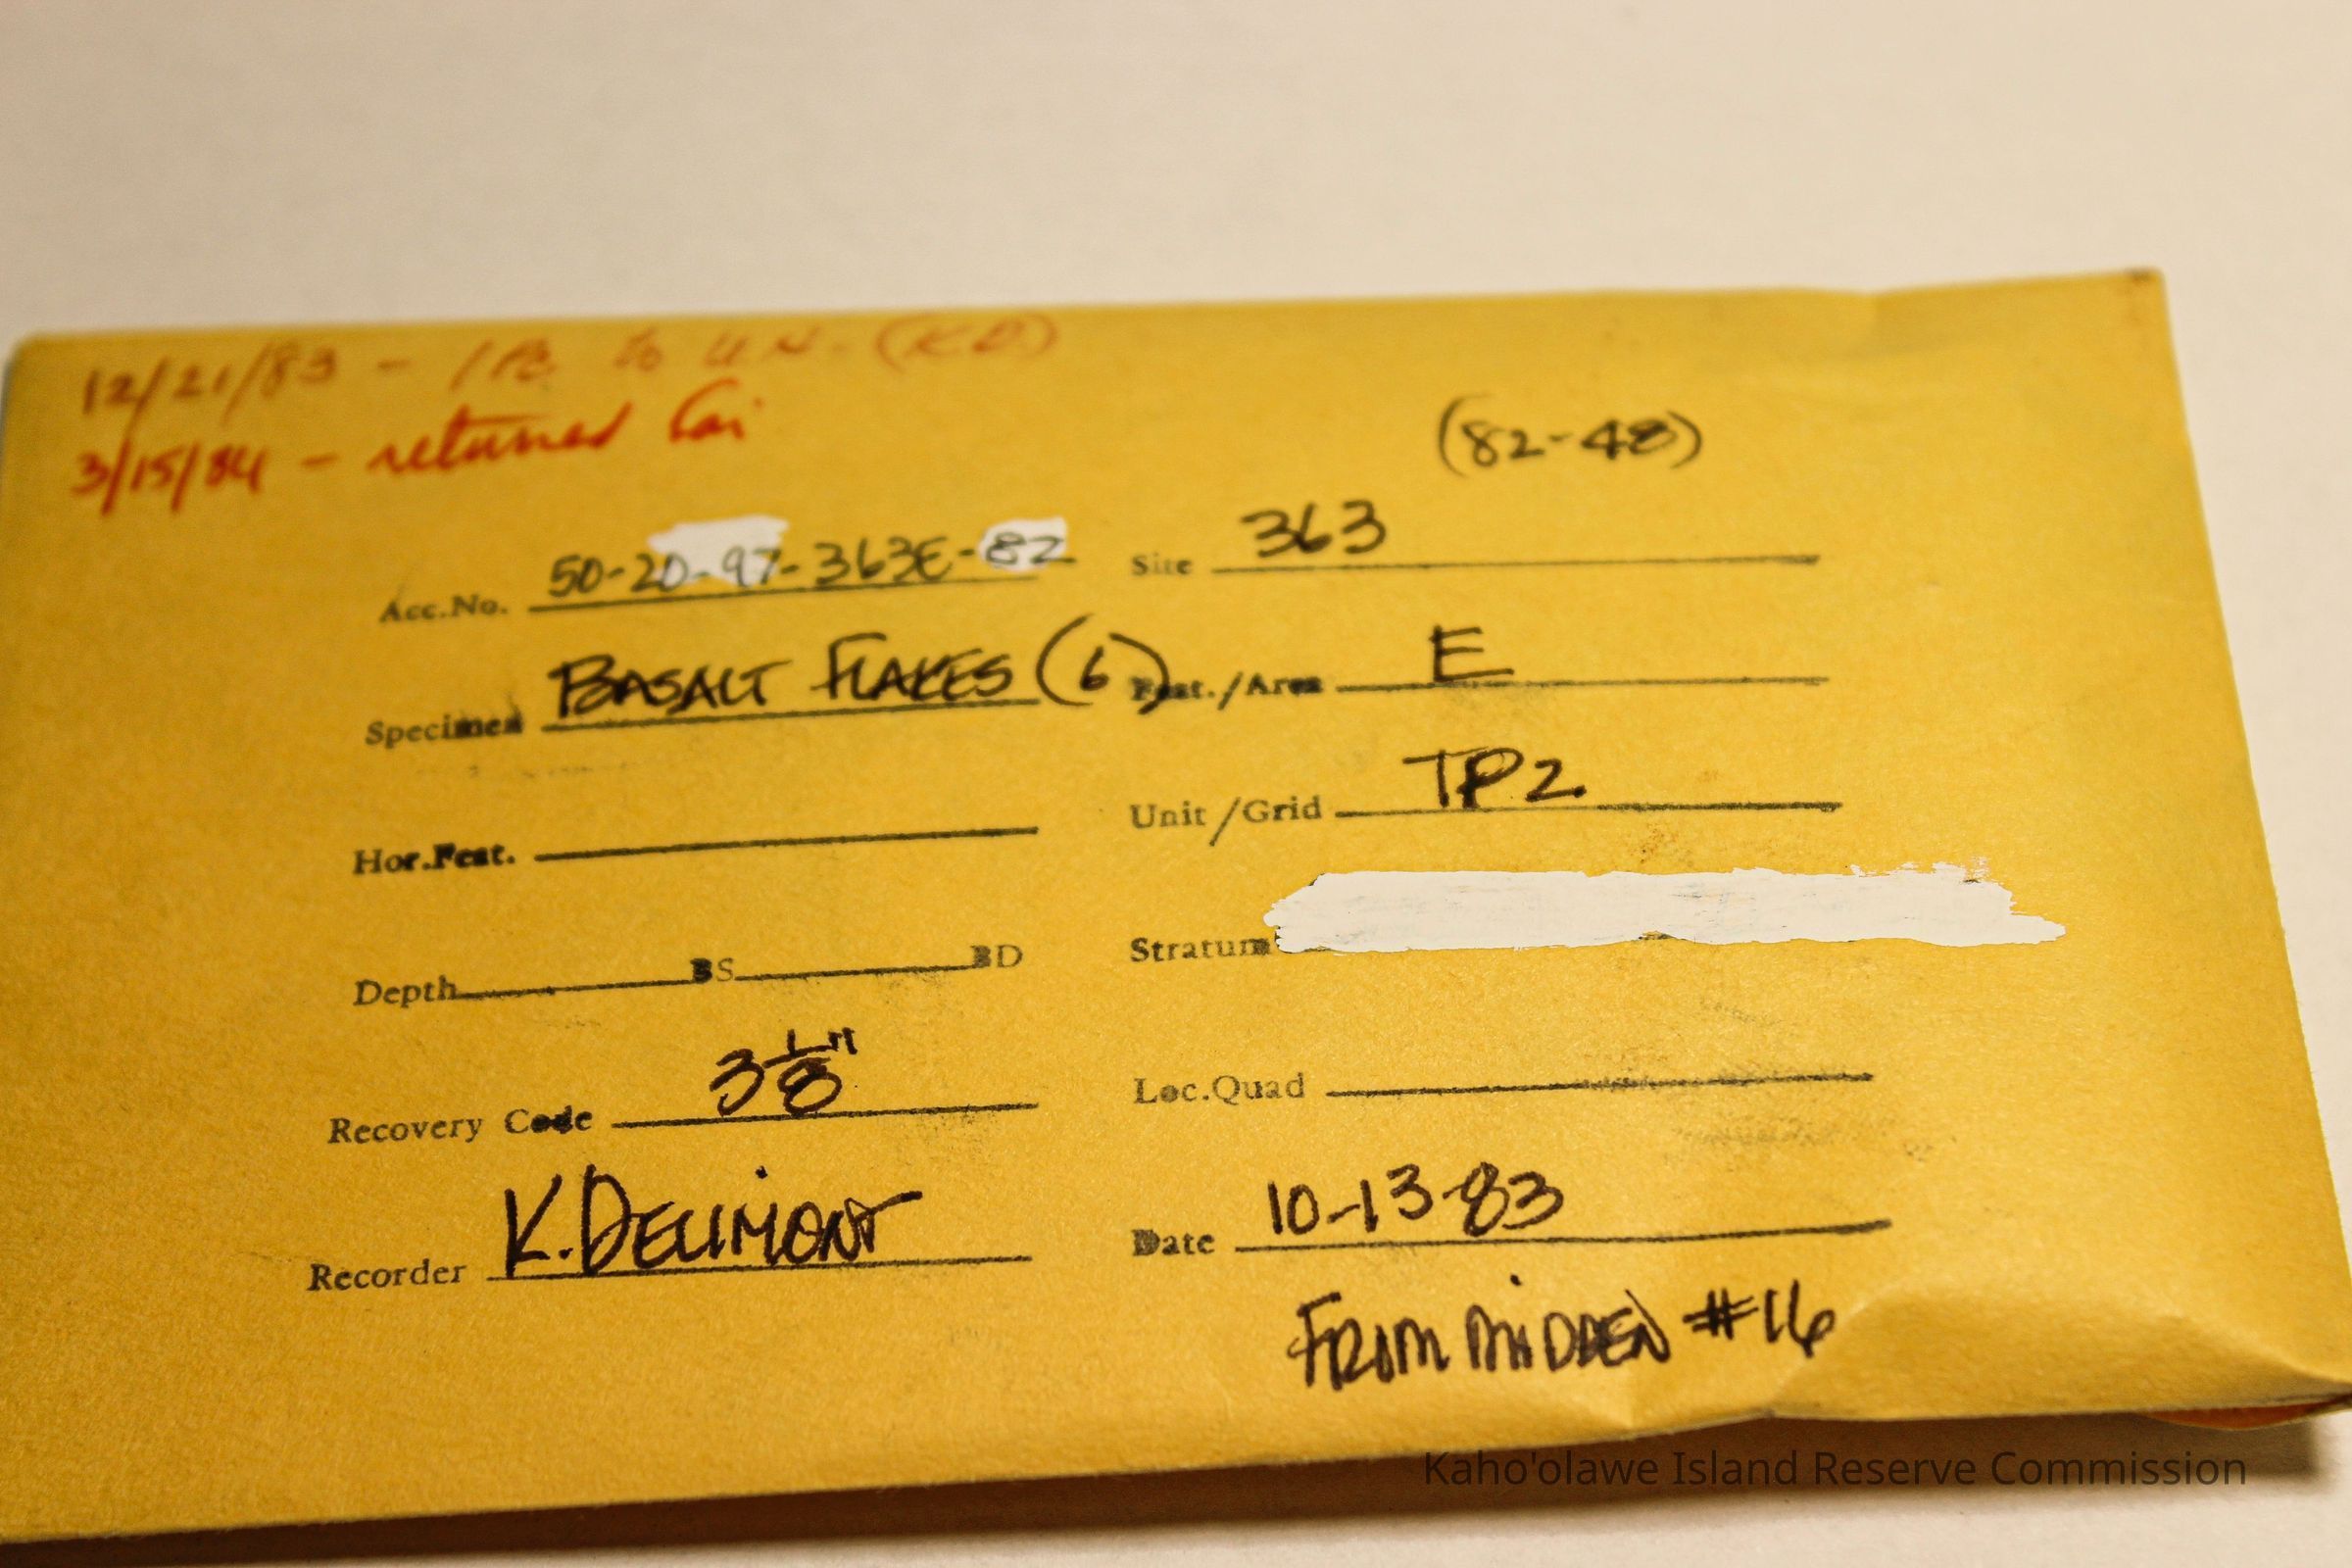 12/21/83 - 1 Pc. to U.H. (KD)
3/15/84 - returned
(82-48)
Acc.No. 50-20-97-363E-82 Site 363
Specimen BASALT FLAKES (6) Feat./Area E
Hor.Feat. Unit/Grid TP2
Depth BS BD Stratum
Recovery Code 3 1/8" Loc.Quad
Recorder K. DELIMONT Date 10-13-83
FROM MIDDEN #16
Kaho'olawe Island Reserve Commission